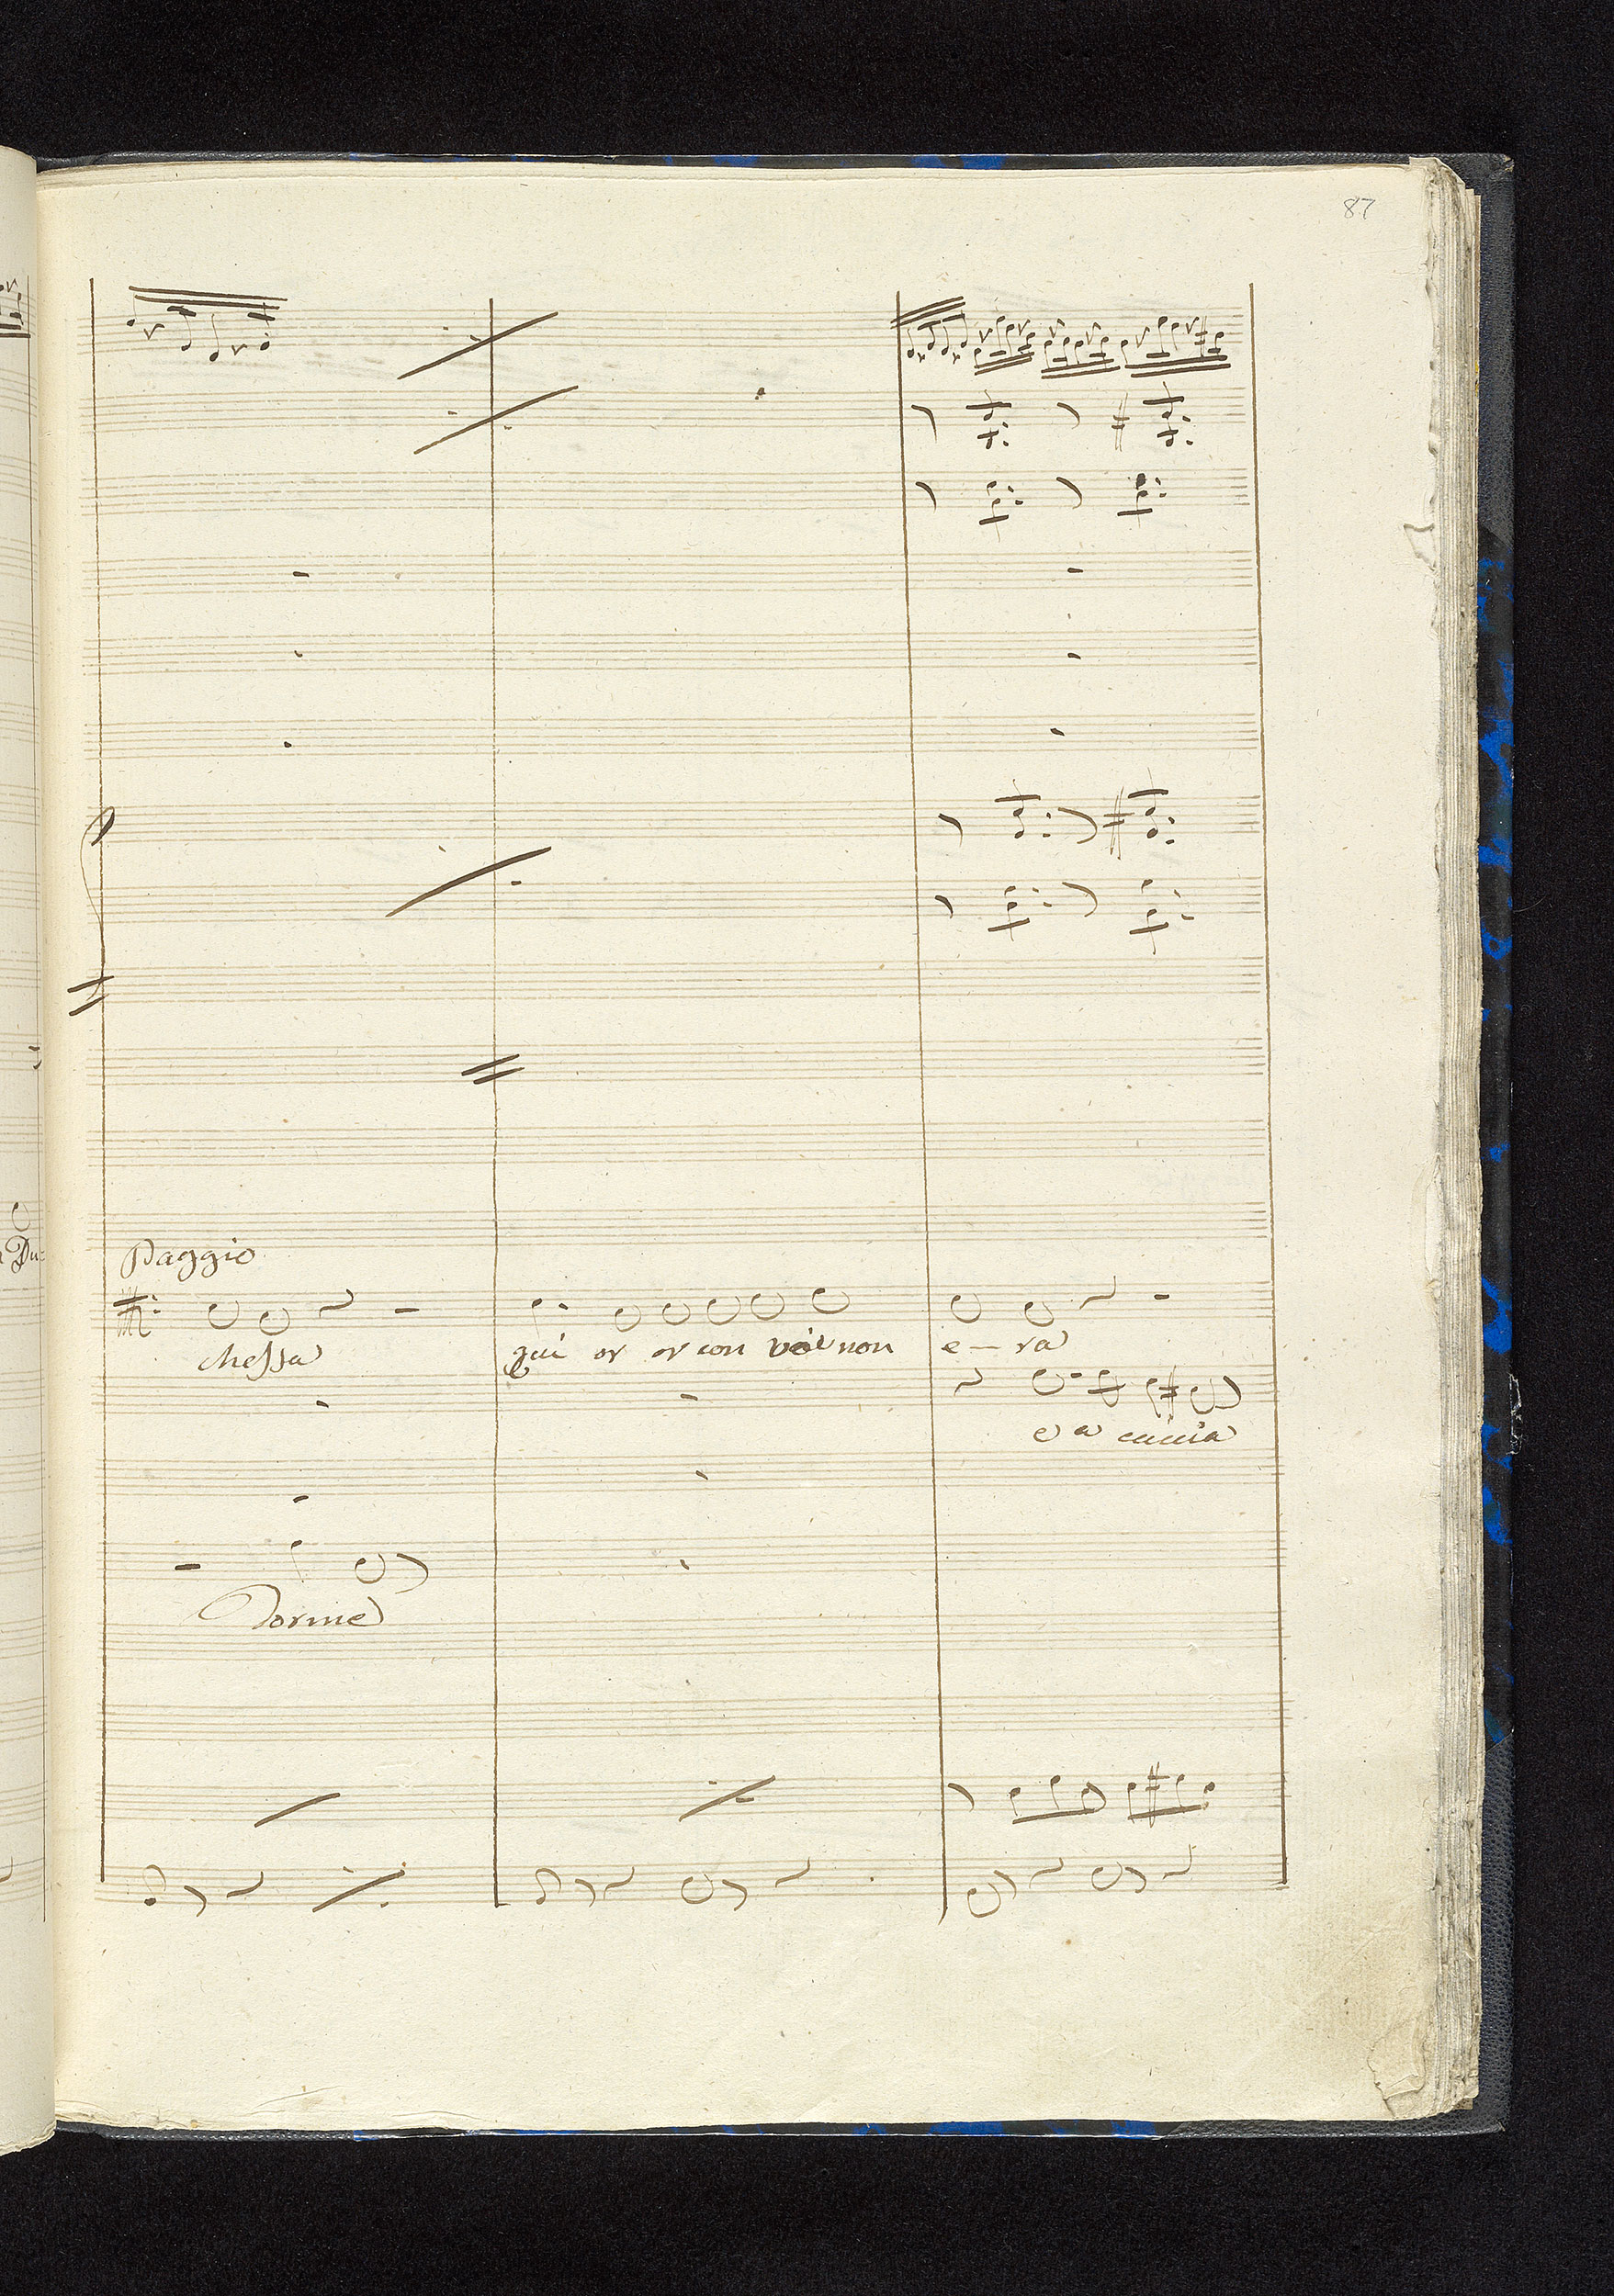 87
Du=
Paggio
chessa
qui or or con voi non e-ra
e a caccia
Dorme